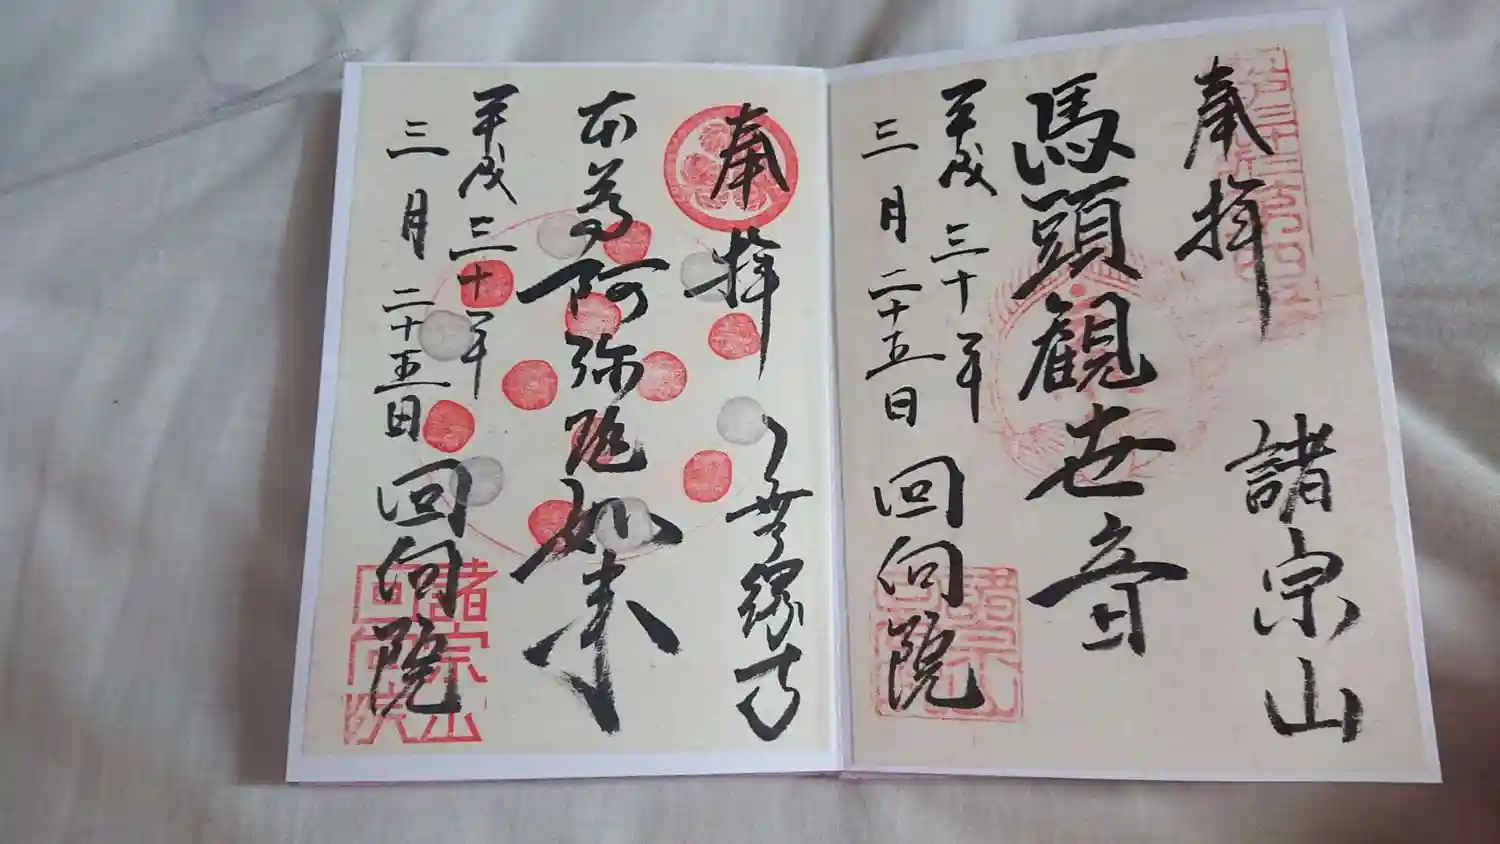 奉拝
諸宗山
馬頭観世音
平成三十年
三月二十五日
回向院
諸宗山
回向院
奉拝
無縁寺
本尊阿弥陀如来
平成三十年
三月二十五日
回向院
諸宗山
回向院